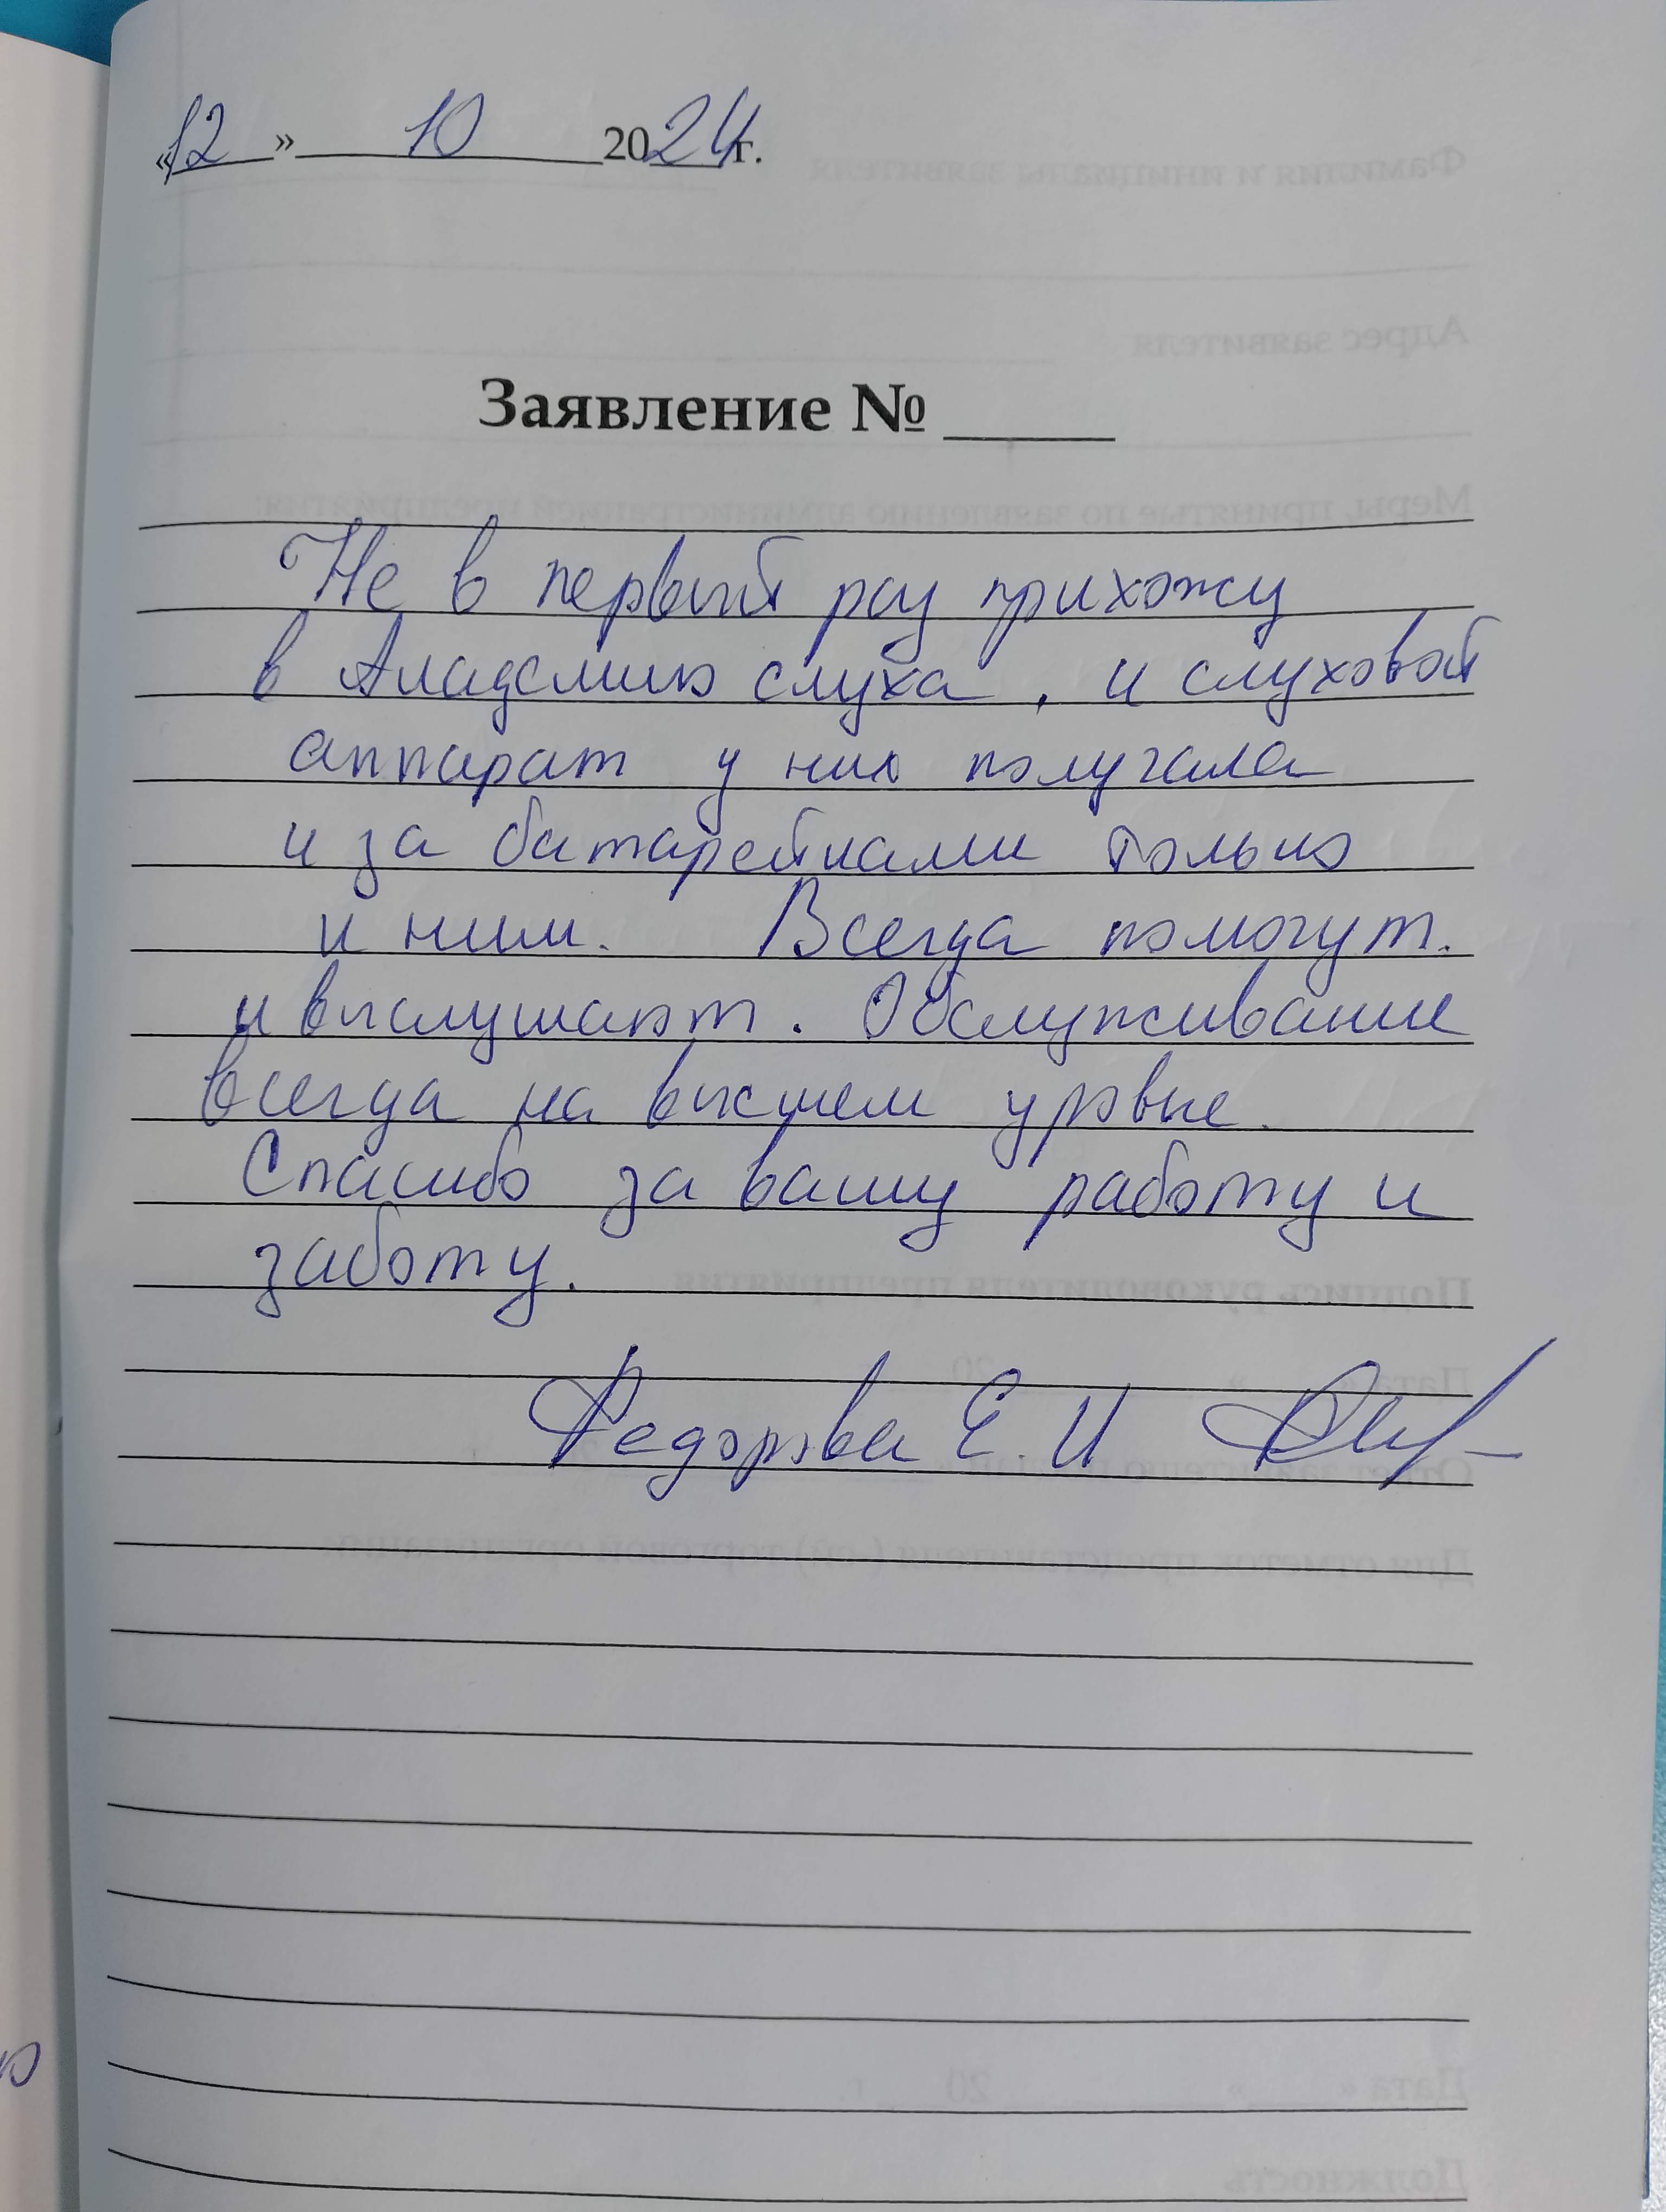 «12» 10 2024г.
Заявление №
Не в первый раз прихожу
в Академию слуха, и слуховой
аппарат у них получала
и за батарейками только
к ним. Всегда помогут.
и выслушают. Обслуживание
всегда на высшем уровне.
Спасибо за вашу работу и
заботу.
Федорова Е. И